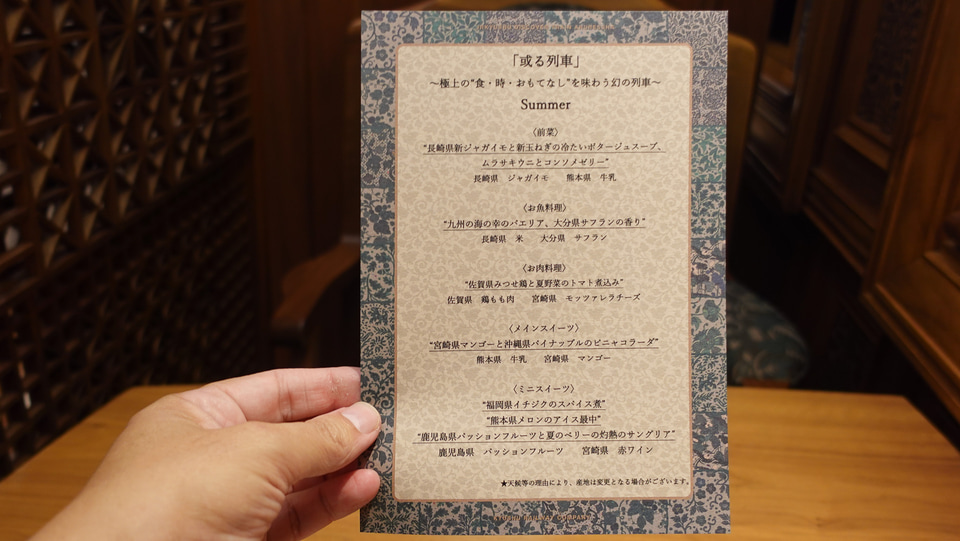 「或る列車」
～極上の"食・時・おもてなし"を味わう幻の列車～
Summer
〈前菜〉
"長崎県新ジャガイモと新玉ねぎの冷たいポタージュスープ、
ムラサキウニとコンソメゼリー"
長崎県 ジャガイモ 熊本県 牛乳
〈お魚料理〉
"九州の海の幸のパエリア、大分県サフランの香り"
長崎県 米 大分県 サフラン
〈お肉料理〉
"佐賀県みつせ鶏と夏野菜のトマト煮込み"
佐賀県 鶏もも肉 宮崎県 モッツァレラチーズ
〈メインスイーツ〉
"宮崎県マンゴーと沖縄県パイナップルのピニャコラーダ"
熊本県 牛乳 宮崎県 マンゴー
〈ミニスイーツ〉
"福岡県イチジクのスパイス煮"
"熊本県メロンのアイス最中"
"鹿児島県パッションフルーツと夏のベリーの灼熱のサングリア"
鹿児島県 パッションフルーツ 宮崎県 赤ワイン
★天候等の理由により、産地は変更となる場合がございます。
KYUSHU RAILWAY COMPANY